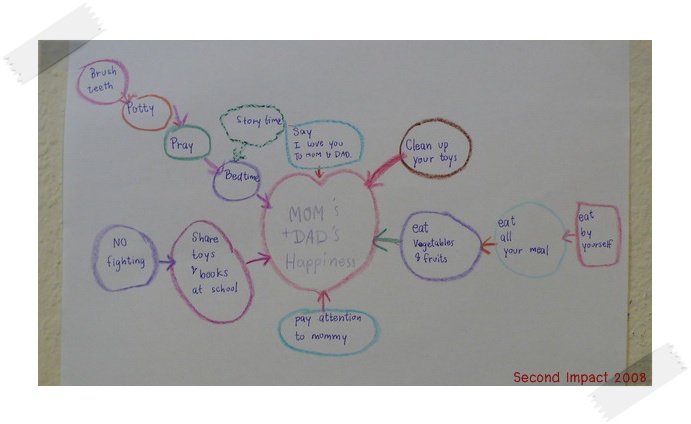 Brush
teeth
Potty
Pray
Story time
Bedtime
Say
I love you
To mom & DAD.
Clean up
your toys
MOM's
+DAD's
Happiness
NO
fighting
Share
toys
& books
at school
eat
vegetables
& fruits
eat
all
your meal
eat
by
yourself
pay attention
to mommy
Second Impact 2008